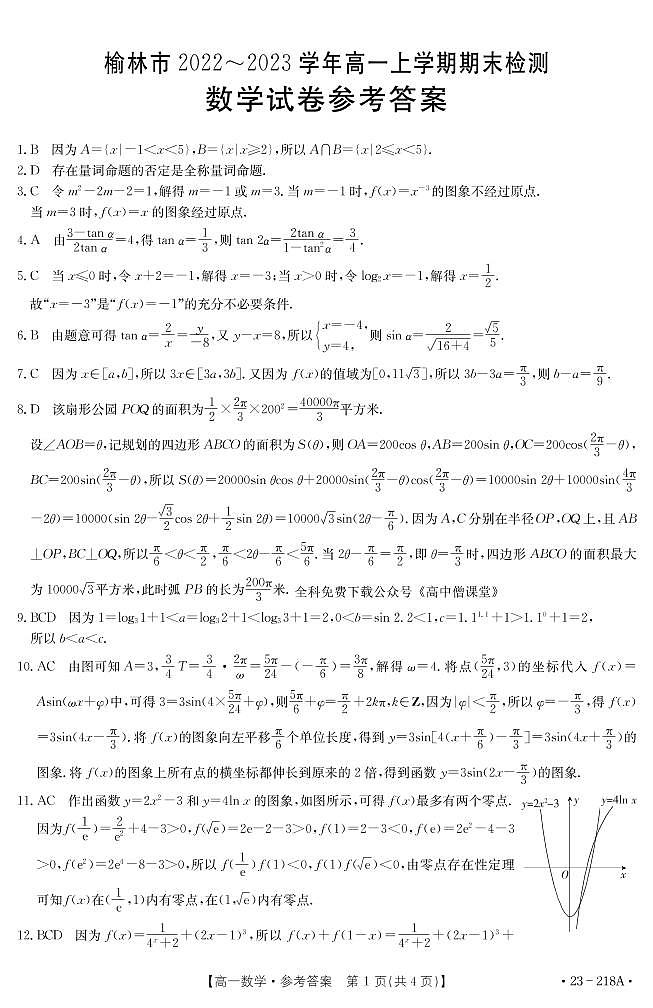 榆林市 2022～2023 学年高一上学期期末检测
数学试卷参考答案
1. B 因为 A={x|-1<x<5},B={x|x⩾2},所以 A∩B={x|2⩽x<5}.
2. D 存在量词命题的否定是全称量词命题.
3. C 令 m²-2m-2=1,解得 m=-1 或 m=3. 当 m=-1 时,f(x)=x⁻³的图象不经过原点.
当 m=3 时,f(x)=x 的图象经过原点.
4. A 由(3-tan α)/(2tan α)=4,得 tan α=1/3,则 tan 2α=2tan α/(1-tan²α)=3/4.
5. C 当 x⩽0 时,令 x+2=-1,解得 x=-3;当 x>0 时,令 log₂x=-1,解得 x=1/2.
故“x=-3”是“f(x)=-1”的充分不必要条件.
6. B 由题意可得 tan α=2/x=y/(-8),又 y-x=8,所以{x=-4, y=4, 则 sin α=2/√(16+4)=√5/5.
7. C 因为 x∈[a,b],所以 3x∈[3a,3b]. 又因为 f(x)的值域为[0,11√3],所以 3b-3a=π/3,则 b-a=π/9.
8. D 该扇形公园 POQ 的面积为1/2×2π/3×200²=40000π/3平方米.
设∠AOB=θ,记规划的四边形 ABCO 的面积为 S(θ),则 OA=200cos θ,AB=200sin θ,OC=200cos(2π/3-θ),
BC=200sin(2π/3-θ),所以 S(θ)=20000sin θcos θ+20000sin(2π/3-θ)cos(2π/3-θ)=10000sin 2θ+10000sin(4π/3
-2θ)=10000(sin 2θ-√3/2cos 2θ+1/2sin 2θ)=10000√3sin(2θ-π/6). 因为 A,C 分别在半径OP,OQ 上,且 AB
⊥OP,BC⊥OQ,所以π/6<θ<π/2,π/6<2θ-π/6<5π/6. 当 2θ-π/6=π/2,即 θ=π/3时,四边形 ABCO 的面积最大
为 10000√3平方米,此时弧 PB 的长为200π/3米. 全科免费下载公众号《高中僧课堂》
9. BCD 因为 1=log₃1+1<a=log₃2+1<log₃3+1=2,0<b=sin 2.2<1,c=1.1^1.1+1>1.1⁰+1=2,
所以 b<a<c.
10. AC 由图可知 A=3,3/4T=3/4·2π/ω=5π/24-(-π/6)=3π/8,解得 ω=4. 将点(5π/24,3)的坐标代入 f(x)=
Asin(ωx+φ)中,可得 3=3sin(4×5π/24+φ),则5π/6+φ=π/2+2kπ,k∈Z,因为|φ|<π/2,所以 φ=-π/3,得 f(x)
=3sin(4x-π/3). 将 f(x)的图象向左平移π/6个单位长度,得到 y=3sin[4(x+π/6)-π/3]=3sin(4x+π/3)的
图象. 将 f(x)的图象上所有点的横坐标都伸长到原来的 2 倍,得到函数 y=3sin(2x-π/3)的图象.
11. AC 作出函数 y=2x²-3 和 y=4ln x 的图象,如图所示,可得 f(x)最多有两个零点.
y=2x²-3 y y=4ln x
O x
因为f(1/e)=2/e²+4-3>0,f(√e)=2e-2-3>0,f(1)=2-3<0,f(e)=2e²-4-3
>0,f(e²)=2e⁴-8-3>0,所以 f(1/e)f(1)<0,f(1)f(√e)<0,由零点存在性定理
可知f(x)在(1/e,1)内有零点,在(1,√e)内有零点.
12. BCD 因为 f(x)=1/(4ˣ+2)+(2x-1)³,所以 f(x)+f(1-x)=1/(4ˣ+2)+(2x-1)³+
【高一数学·参考答案 第 1 页(共 4 页)】
·23-218A·